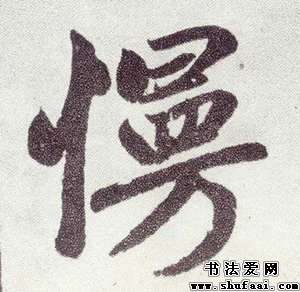 慢
书法爱网
www.shufaai.com